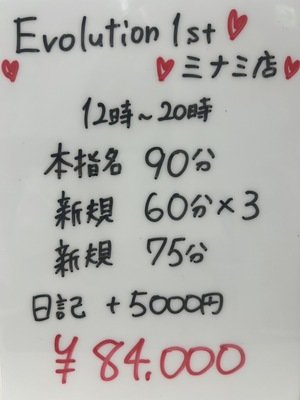 Evolution 1st
ミナミ店
12時～20時
本指名 90分
新規 60分×3
新規 75分
日記 +5000円
¥84.000